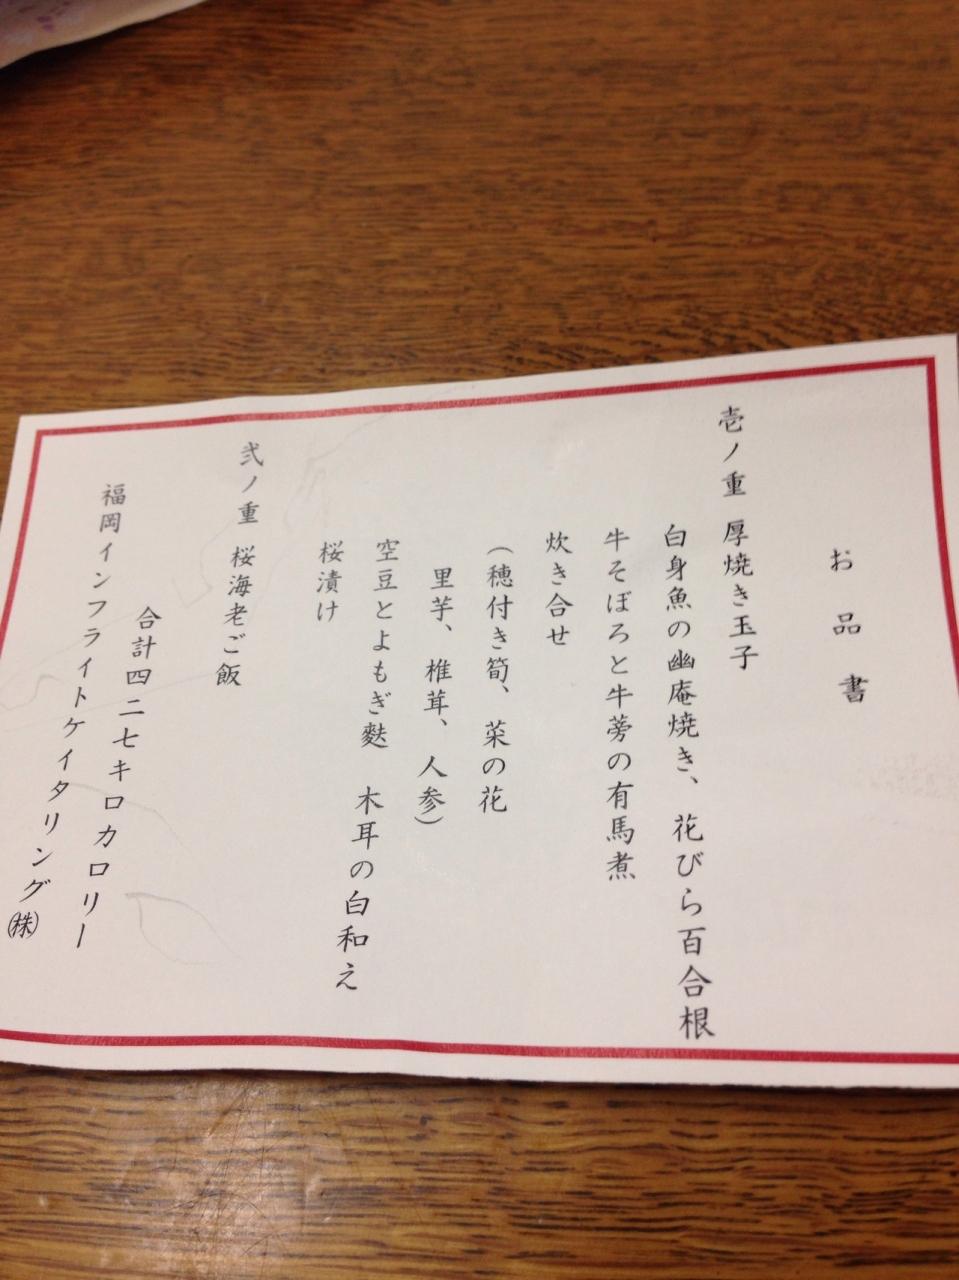 お品書
壱ノ重 厚焼き玉子
白身魚の幽庵焼き、花びら百合根
牛そぼろと牛蒡の有馬煮
炊き合せ
(穂付き筍、菜の花
里芋、椎茸、人参)
空豆とよもぎ麩 木耳の白和え
桜漬け
弐ノ重 桜海老ご飯
合計四二七キロカロリー
福岡インフライトケイタリング㈱